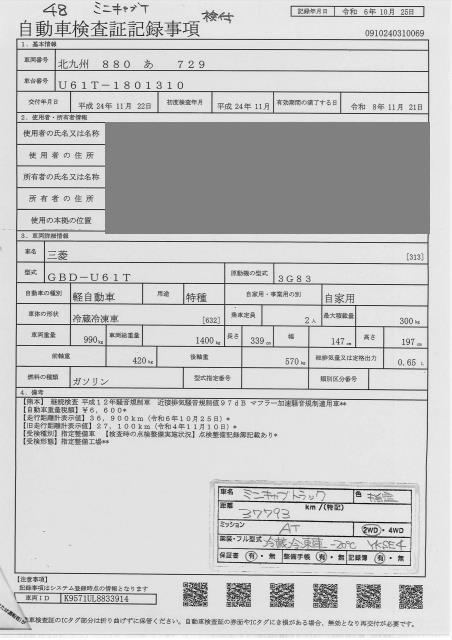 48 ミニキャブT 検付
記録年月日 令和 6年10月 25日
自動車検査証記録事項
0910240310069
1. 基本情報
車両番号 北九州 880 あ 729
車台番号 U61T-1801310
交付年月日 平成 24年 11月 22日 初度検査年月 平成 24年 11月 有効期間の満了する日 令和 8年 11月 21日
2. 使用者・所有者情報
使用者の氏名又は名称
使用者の住所
所有者の氏名又は名称
所有者の住所
使用の本拠の位置
3. 車両詳細情報
車名 三菱 [313]
型式 GBD-U61T 原動機の型式 3G83
自動車の種別 軽自動車 用途 特種 自家用・事業用の別 自家用
車体の形状 冷蔵冷凍車 [632] 乗車定員 2人 最大積載量 300kg
車両重量 990kg 車両総重量 1400kg 長さ 339cm 幅 147cm 高さ 197cm
前軸重 420kg 後軸重 570kg 総排気量又は定格出力 0.65 L
燃料の種類 ガソリン 型式指定番号 類別区分番号
4. 備考
【熊本】 継続検査 平成12年騒音規制車 近接排気騒音規制値97dB マフラー加速騒音規制適用車**
【自動車重量税額】¥6,600*
【走行距離計表示値】36,900km(令和6年10月25日)*
【旧走行距離計表示値】27,100km(令和4年11月10日)*
【受検種別】指定整備車 【検査時の点検整備実施状況】点検整備記録簿記載あり*
【受検形態】指定整備工場**
車名 ミニキャブトラック 色
距離 37793 km/(特記)
ミッション AT 2WD・4WD
冷蔵冷凍車 -20℃
保証書 有・無 整備手帳 有・無 記録簿 有・無
【注意事項】
記録事項はシステム登録時点の情報となります
車両ID K9571UL8833914
自動車検査証のICタグ部分は折り曲げずに保管ください。自動車検査証の券面やICタグにき損がある場合、無効となり再交付が必要です。